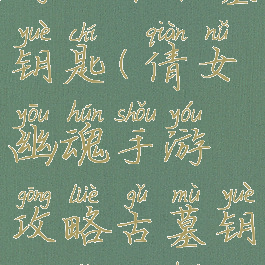 yuè chí qiàn nǚ
钥匙(倩女
yōu hún shǒu yóu
幽魂手游
gōng lüè gǔ mù yuè
攻略古墓钥